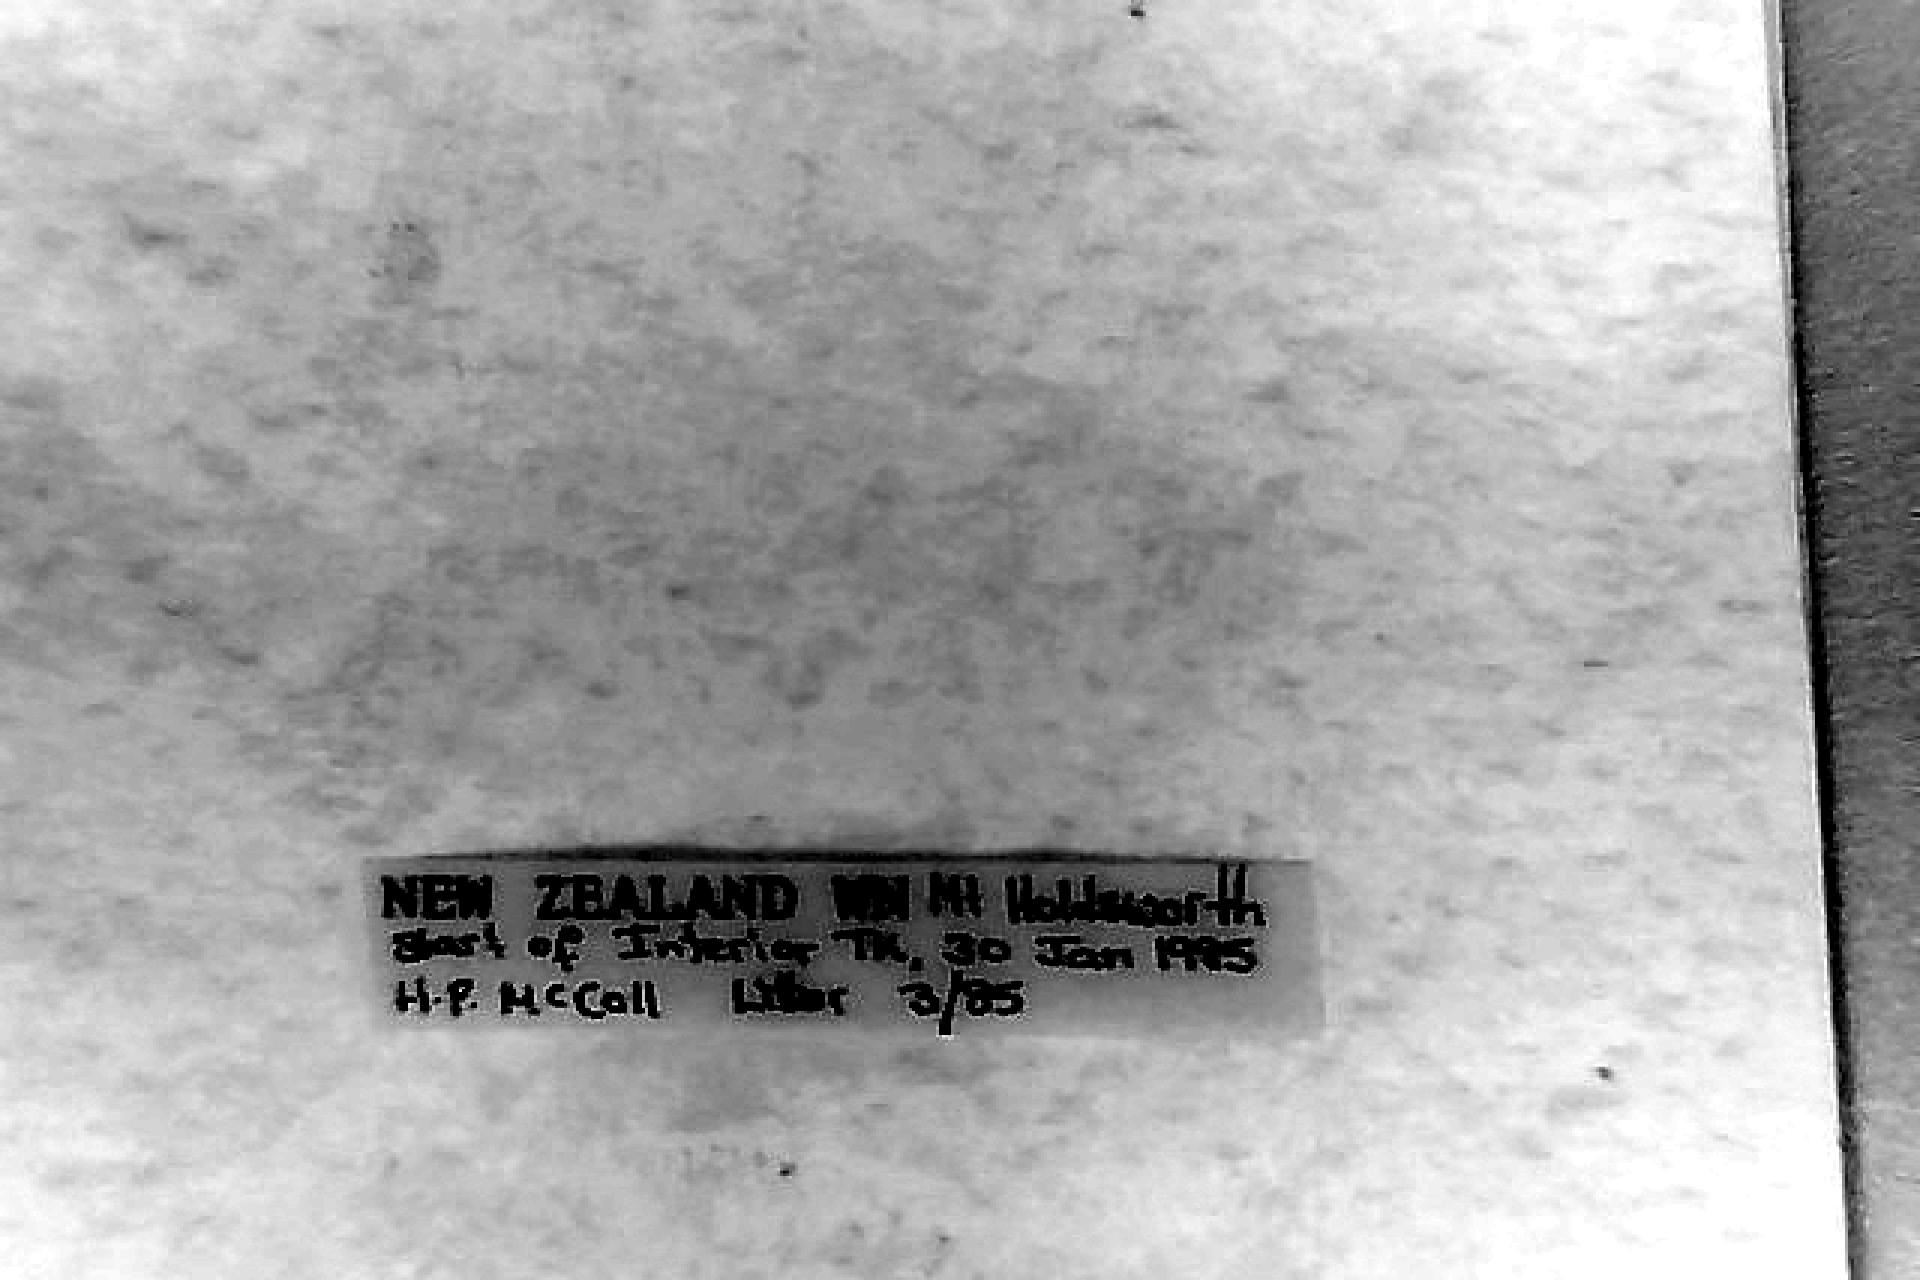 NEW ZEALAND WN Mt Holdsworth
Start of Interior TK, 30 Jan 1985
H.P. McColl Litter 3/85